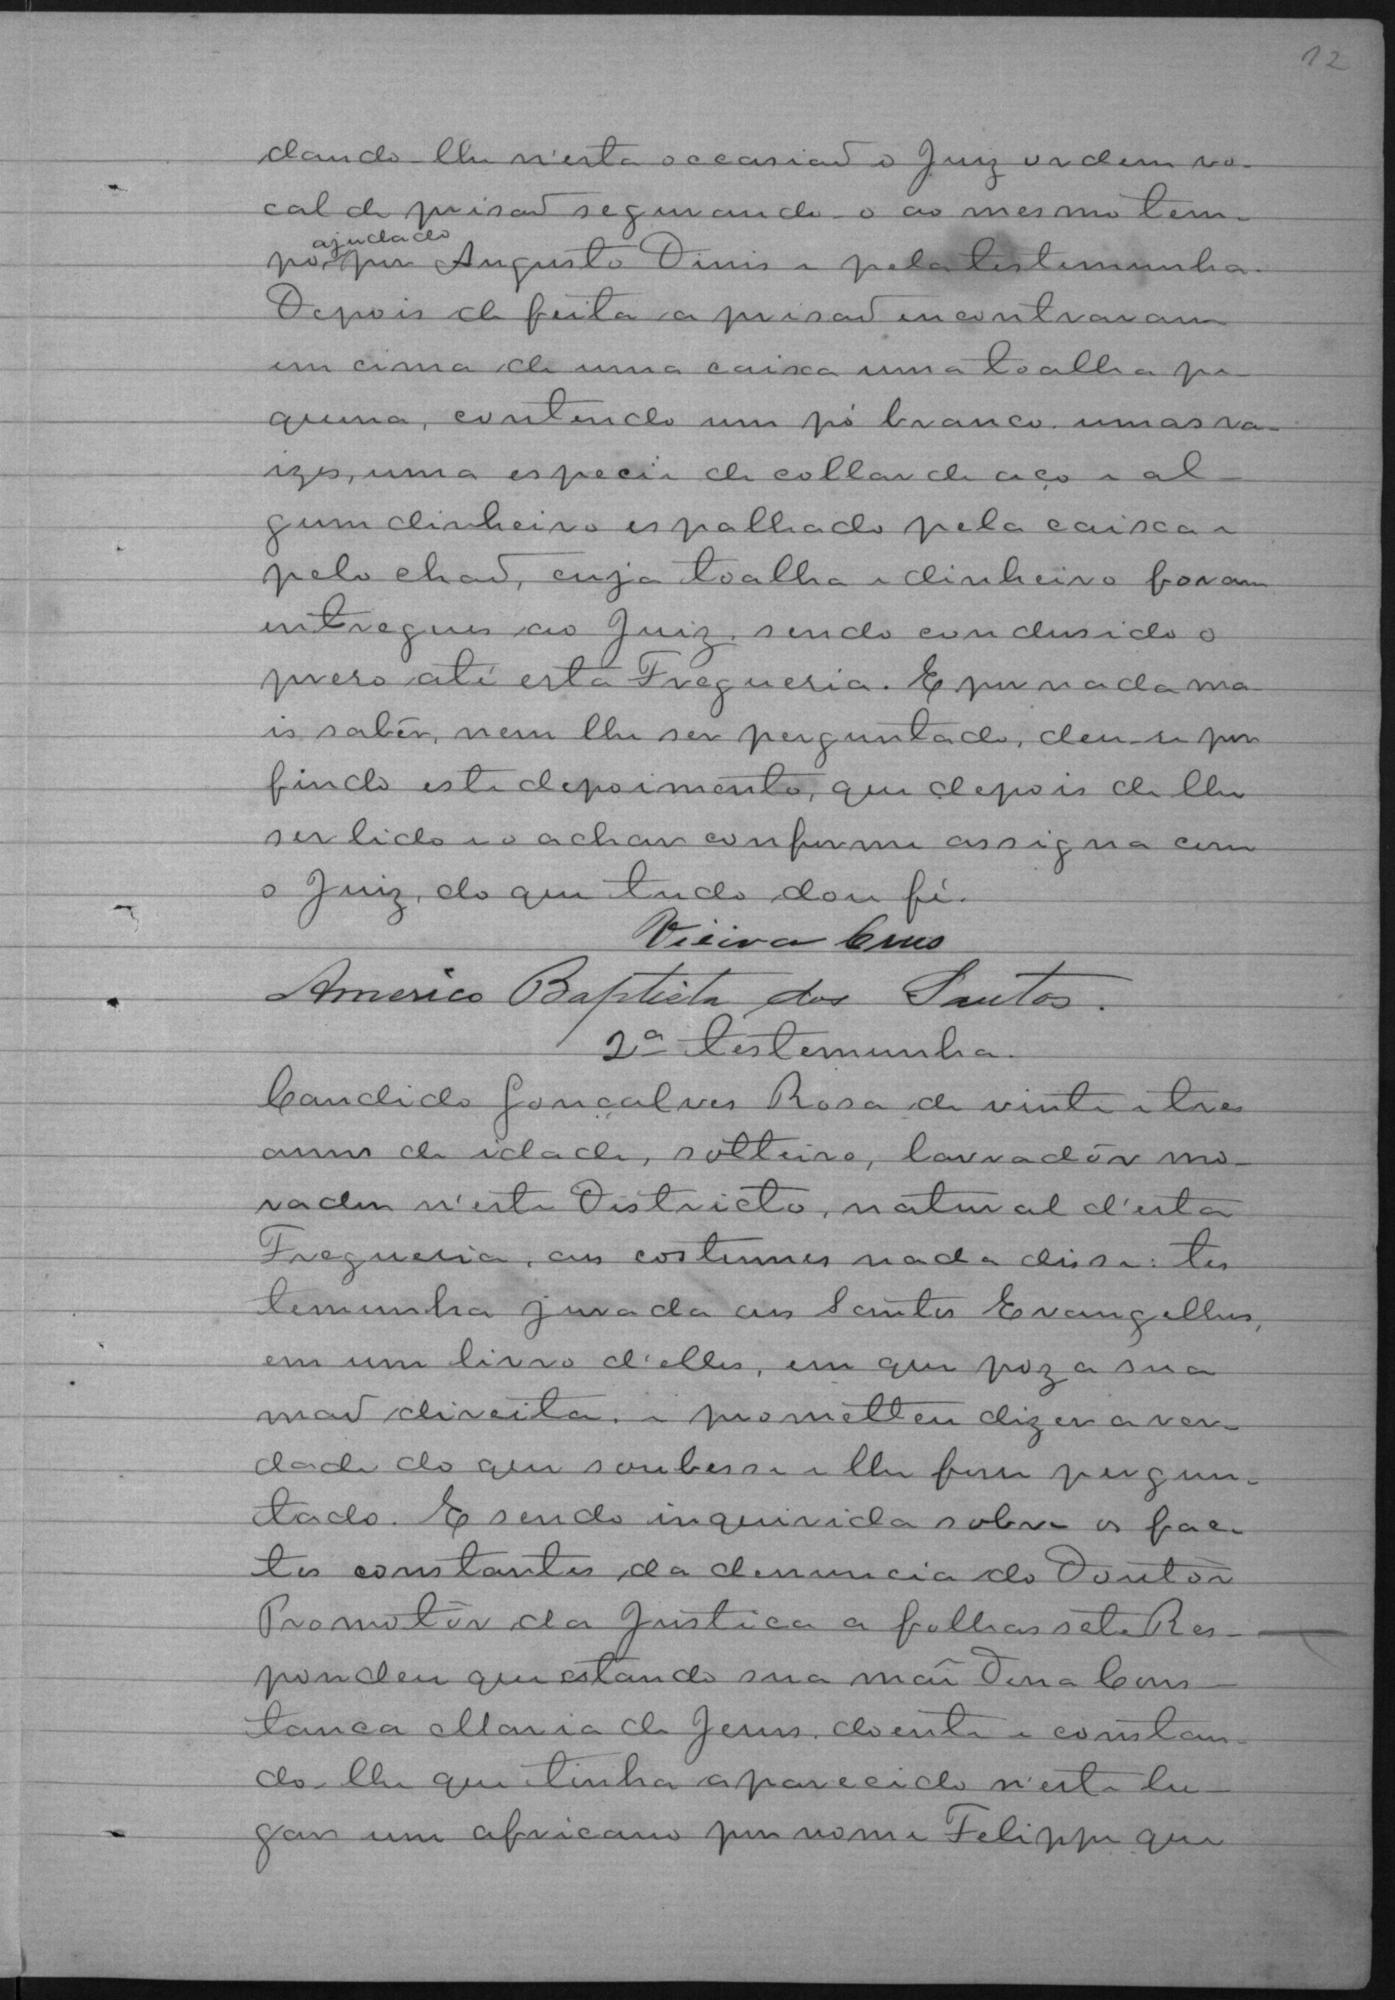 12
dando-lhe n'esta occasiaõ o Juiz ordem vo-
cal de prisaõ segurando-o ao mesmo tem-
ajudado
po, por Augusto Dinis e pela testemunha.
Depois de feita a prisaõ encontraram
em cima de uma caixa uma toalha pe-
quena, contendo um pó branco, umas ra-
izes, uma especie de collar de aço e al-
gum dinheiro espalhado pela caixa e
pelo chaõ, cuja toalha e dinheiro foram
entregues ao Juiz, sendo condusido o
preso até esta Freguesia. E por nada ma-
is sabêr, nem lhe ser perguntado, deu-se por
findo este depoimento, que depois de lhe
ser lido e o achar conforme assigna com
o Juiz, do que tudo dou fé.
Vieira Crus
Americo Baptista dos Santos.
2ª testemunha.
Candido Gonçalves Rosa de vinte e tres
annos de idade, soltteiro, lavradôr mo-
rador n'este Districto, natural d'esta
Freguesia, aos costumes nada disse: tes
temunha jurada aos Santos Evangelhos,
em um livro d'elles, em que poz a sua
maõ direita, e prometteu dizer a ver-
dade do que soubesse e lhe fosse pergun-
tado. E sendo inquirida sobre os fac-
tos constantes da denuncia do Doutôr
Promotôr da Justica a folhas sete Res-
pondeu que estando sua maĩ Dona Cons-
tanca Maria de Jesus, doente e constan-
do-lhe que tinha aparecido n'este lu-
gar um africano por nome Felippe que